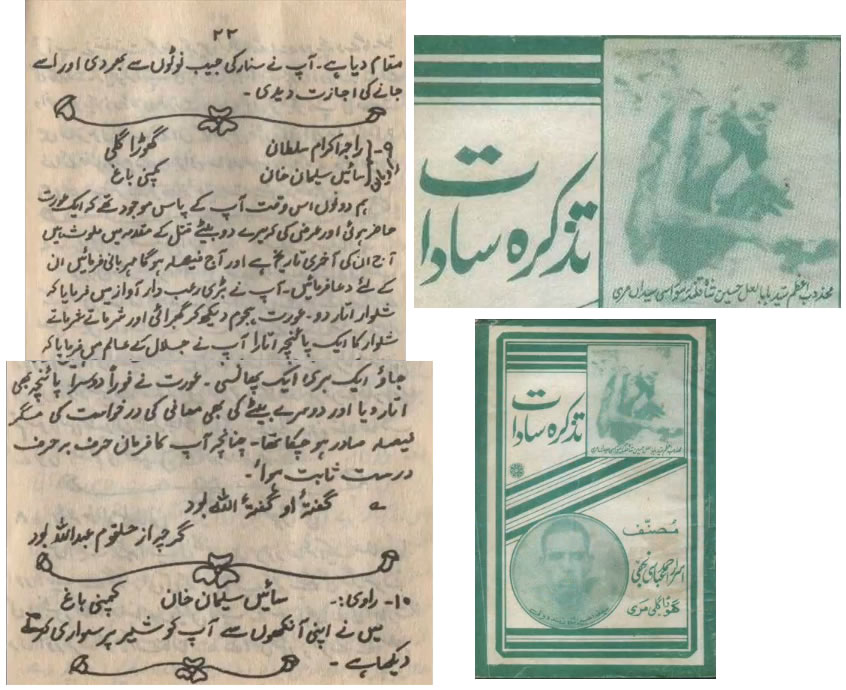 ۲۲
مقام دیا ہے۔ آپ نے سنار کی جیب نوٹوں سے بھر دی اور اسے
جانے کی اجازت دیدی۔
۹- راجہ اکرام سلطان گھوڑا گلی
سائیں سلیمان خان کمپنی باغ
ہم دونوں اس وقت آپ کے پاس موجود تھے کہ ایک عورت
حاضر ہوئی اور عرض کی کہ میرے دو بیٹے قتل کے مقدمہ میں ملوث ہیں
آج ان کی آخری تاریخ ہے اور آج فیصلہ ہوگا مہربانی فرمائیں ان
کے لئے دعا فرمائیں۔ آپ نے بڑی رعب دار آواز میں فرمایا کہ
شلوار اتار دو۔ عورت ہجوم دیکھ کر گھبرائی اور شرماتے شرماتے
شلوار کا ایک پائنچہ اتارا آپ نے جلال کے عالم میں فرمایا کہ
جاؤ ایک بری ایک پھانسی۔ عورت نے فوراً دوسرا پائنچہ بھی
اتار دیا اور دوسرے بیٹے کی بھی معافی کی درخواست کی مگر
فیصلہ صادر ہو چکا تھا۔ چنانچہ آپ کا فرمان حرف بر حرف
درست ثابت ہوا۔
؎ گفتۂ او گفتۂ اللہ بود
گرچہ از حلقوم عبداللہ بود
۱۰- راوی:- سائیں سلیمان خان کمپنی باغ
میں نے اپنی آنکھوں سے آپ کو شیر پر سواری کرتے
دیکھا ہے۔
تذکرہ سادات
مجذوب اعظم سید بابا لعل حسین شاہ قلندر سوراسی سیداں مری
تذکرہ سادات
مصنف
عباسی
گلی مری